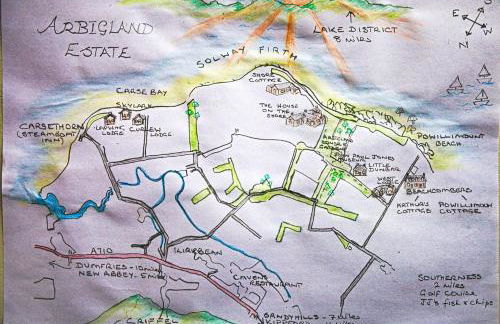 ARBIGLAND
ESTATE
E
S
W
N
LAKE DISTRICT
8 MILES
SOLWAY FIRTH
SHORE
COTTAGE
CARSE BAY
SKYLARK
THE HOUSE
ON THE
SHORE
CARSETHORN
(STEAMBOAT
INN)
LAPWING
LODGE
CURLEW
LODGE
POWILLIMOUNT
BEACH
PAUL JONES
LITTLE
DUNBAR
WEST
LODGE
BEACHCOMBERS
ARTHUR'S
COTTAGE
POWILLIMOUNT
COTTAGE
A710
KIRKBEAN
DUMFRIES
NEW ABBEY
CAVENS
RESTAURANT
SOUTHERNESS
2 MILES
Golf Course
JJ'S fish & chips
SANDYHILLS - 7 miles
CRIFFEL